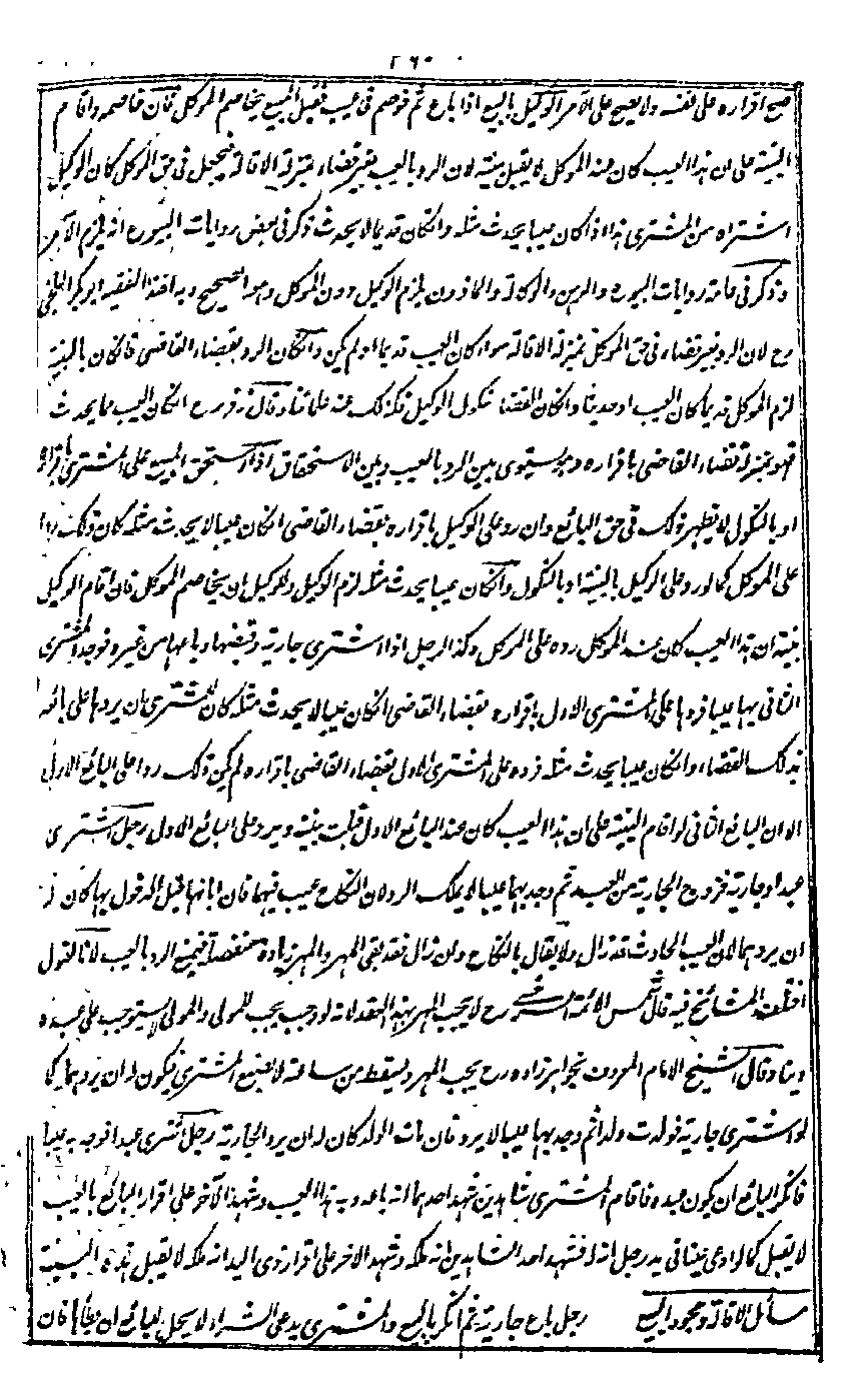 ٣٦٠
صح اقراره على نفسه ولا يصح على الآمر الوكيل بالبيع اذا باع ثم خوصم فى عيب فقبل المبيع يخاصم الموكل فان خاصمه واقام
البينة على ان هذا العيب كان عند الموكل لا يقبل بينته لان الرد بالعيب بغير قضاء بمنزلة الاقالة فيجعل فى حق الموكل كان الوكيل
اشتراه من المشترى هذا اذا كان عيبا يحدث مثله وانكان قديما لا يحدث ذكر فى بعض روايات البيوع انه يلزم الآمر
وذكر فى عامة روايات البيوع والرهن والوكالة والماذون يلزم الوكيل دون الموكل وهو الصحيح وبه اخذ الفقيه ابو بكر البلخى
رح لان الرد بغير قضاء فى حق الموكل بمنزلة الاقالة سواء كان العيب قديما او لم يكن وانكان الرد بقضاء القاضى فانكان بالبينة
لزم الموكل قديما كان العيب او حديثا وانكان القضاء بنكول الوكيل فكذلك عند علمائنا وقال زفر رح انكان العيب مما يحدث
فهو بمنزلة قضاء القاضى باقراره و يستوى بين الرد بالعيب وبين الاستحقاق اذا استحق المبيع على المشترى باقراره
او بالنكول لا يظهر ذلك فى حق البائع وان رد على الوكيل باقراره بقضاء القاضى انكان عيبا لا يحدث مثله كان ذلك ردا
على الموكل كما لو رد على الوكيل بالبينة او بالنكول وانكان عيبا يحدث مثله لزم الوكيل وللوكيل ان يخاصم الموكل فان اقام الوكيل
بينة ان هذا العيب كان عند الموكل رده على الموكل وكذا الرجل اذا اشترى جارية وقبضها وباعها من غيره فوجد المشترى
الثانى بها عيبا فردها على المشترى الاول باقراره بقضاء القاضى انكان عيبا لا يحدث مثله كان للمشترى ان يردها على بائعه
بذلك القضاء وانكان عيبا يحدث مثله فرده على المشترى الاول بقضاء القاضى باقراره لم يكن ذلك ردا على البائع الاول
الا ان البائع الثانى لو اقام البينة على ان هذا العيب كان عند البائع الاول قبلت بينته ويرد على البائع الاول رجل اشترى
عبدا وجارية فزوج الجارية من العبد ثم وجد بهما عيبا لا يملك الرد لان النكاح عيب فيهما فان ابانها قبل الدخول بها كان له
ان يردهما لان العيب الحادث قد زال ولا يقال بالنكاح وان زال فقد بقى المهر والمهر زيادة منفصلة فيمنع الرد بالعيب لانا نقول
اختلف المشائخ فيه قال شمس الائمة السرخسى رح لا يجب المهر بهذا العقد لانه لو وجب يجب للمولى والمولى لا يستوجب على عبده
دينا وقال الشيخ الامام المعروف بخواهر زاده رح يجب المهر ويسقط من ساعته لا بصنع المشترى فيكون له ان يردهما كما
لو اشترى جارية فولدت ولدا ثم وجد بها عيبا لا يرد فان مات الولد كان له ان يرد الجارية رجل اشترى عبدا فوجد به عيبا
فانكر البائع ان يكون عبده فاقام المشترى شاهدين شهد احدهما انه باعه وبه هذا العيب وشهد الآخر على اقرار البائع بالعيب
لا يقبل كما لو ادعى عينا فى يد رجل انه له فشهد احد الشاهدين انه ملكه وشهد الآخر على اقرار ذى اليد انه ملكه لا يقبل هذه البينة
مسائل الاقالة وجحود البيع رجل باع جارية ثم انكر البيع والمشترى يدعى الشراء لا يحل للبائع ان يطأها فان